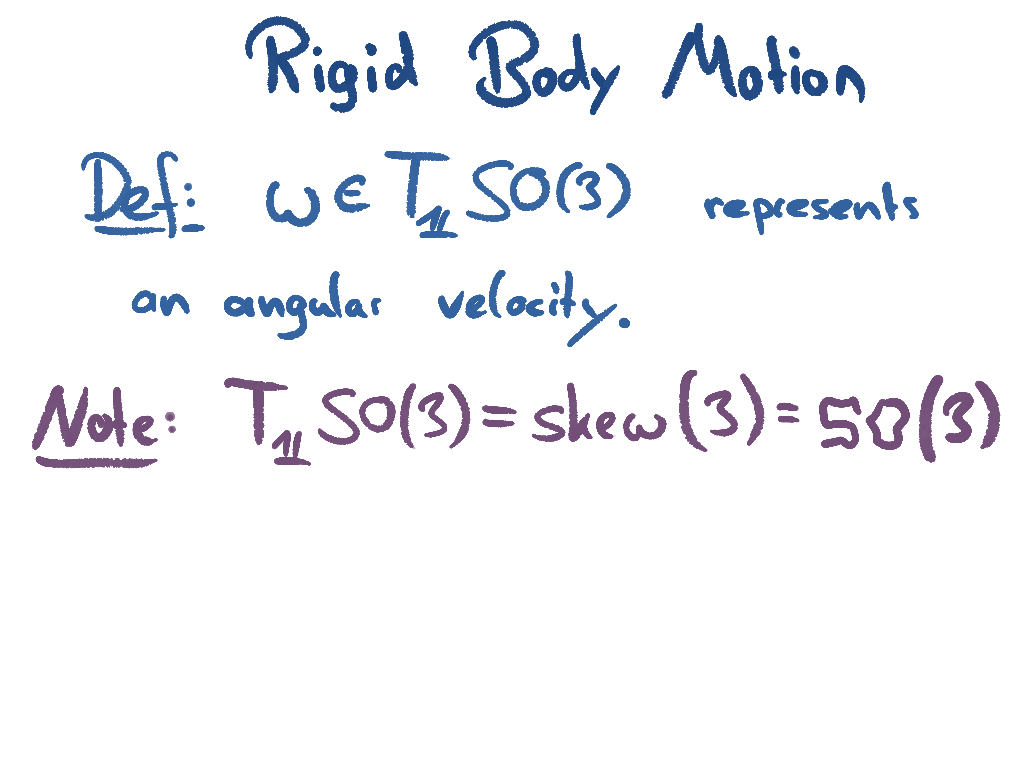 Rigid Body Motion
Def: ω ∈ T_𝟙 SO(3) represents
an angular velocity.
Note: T_𝟙 SO(3) = skew(3) = 𝔰𝔬(3)